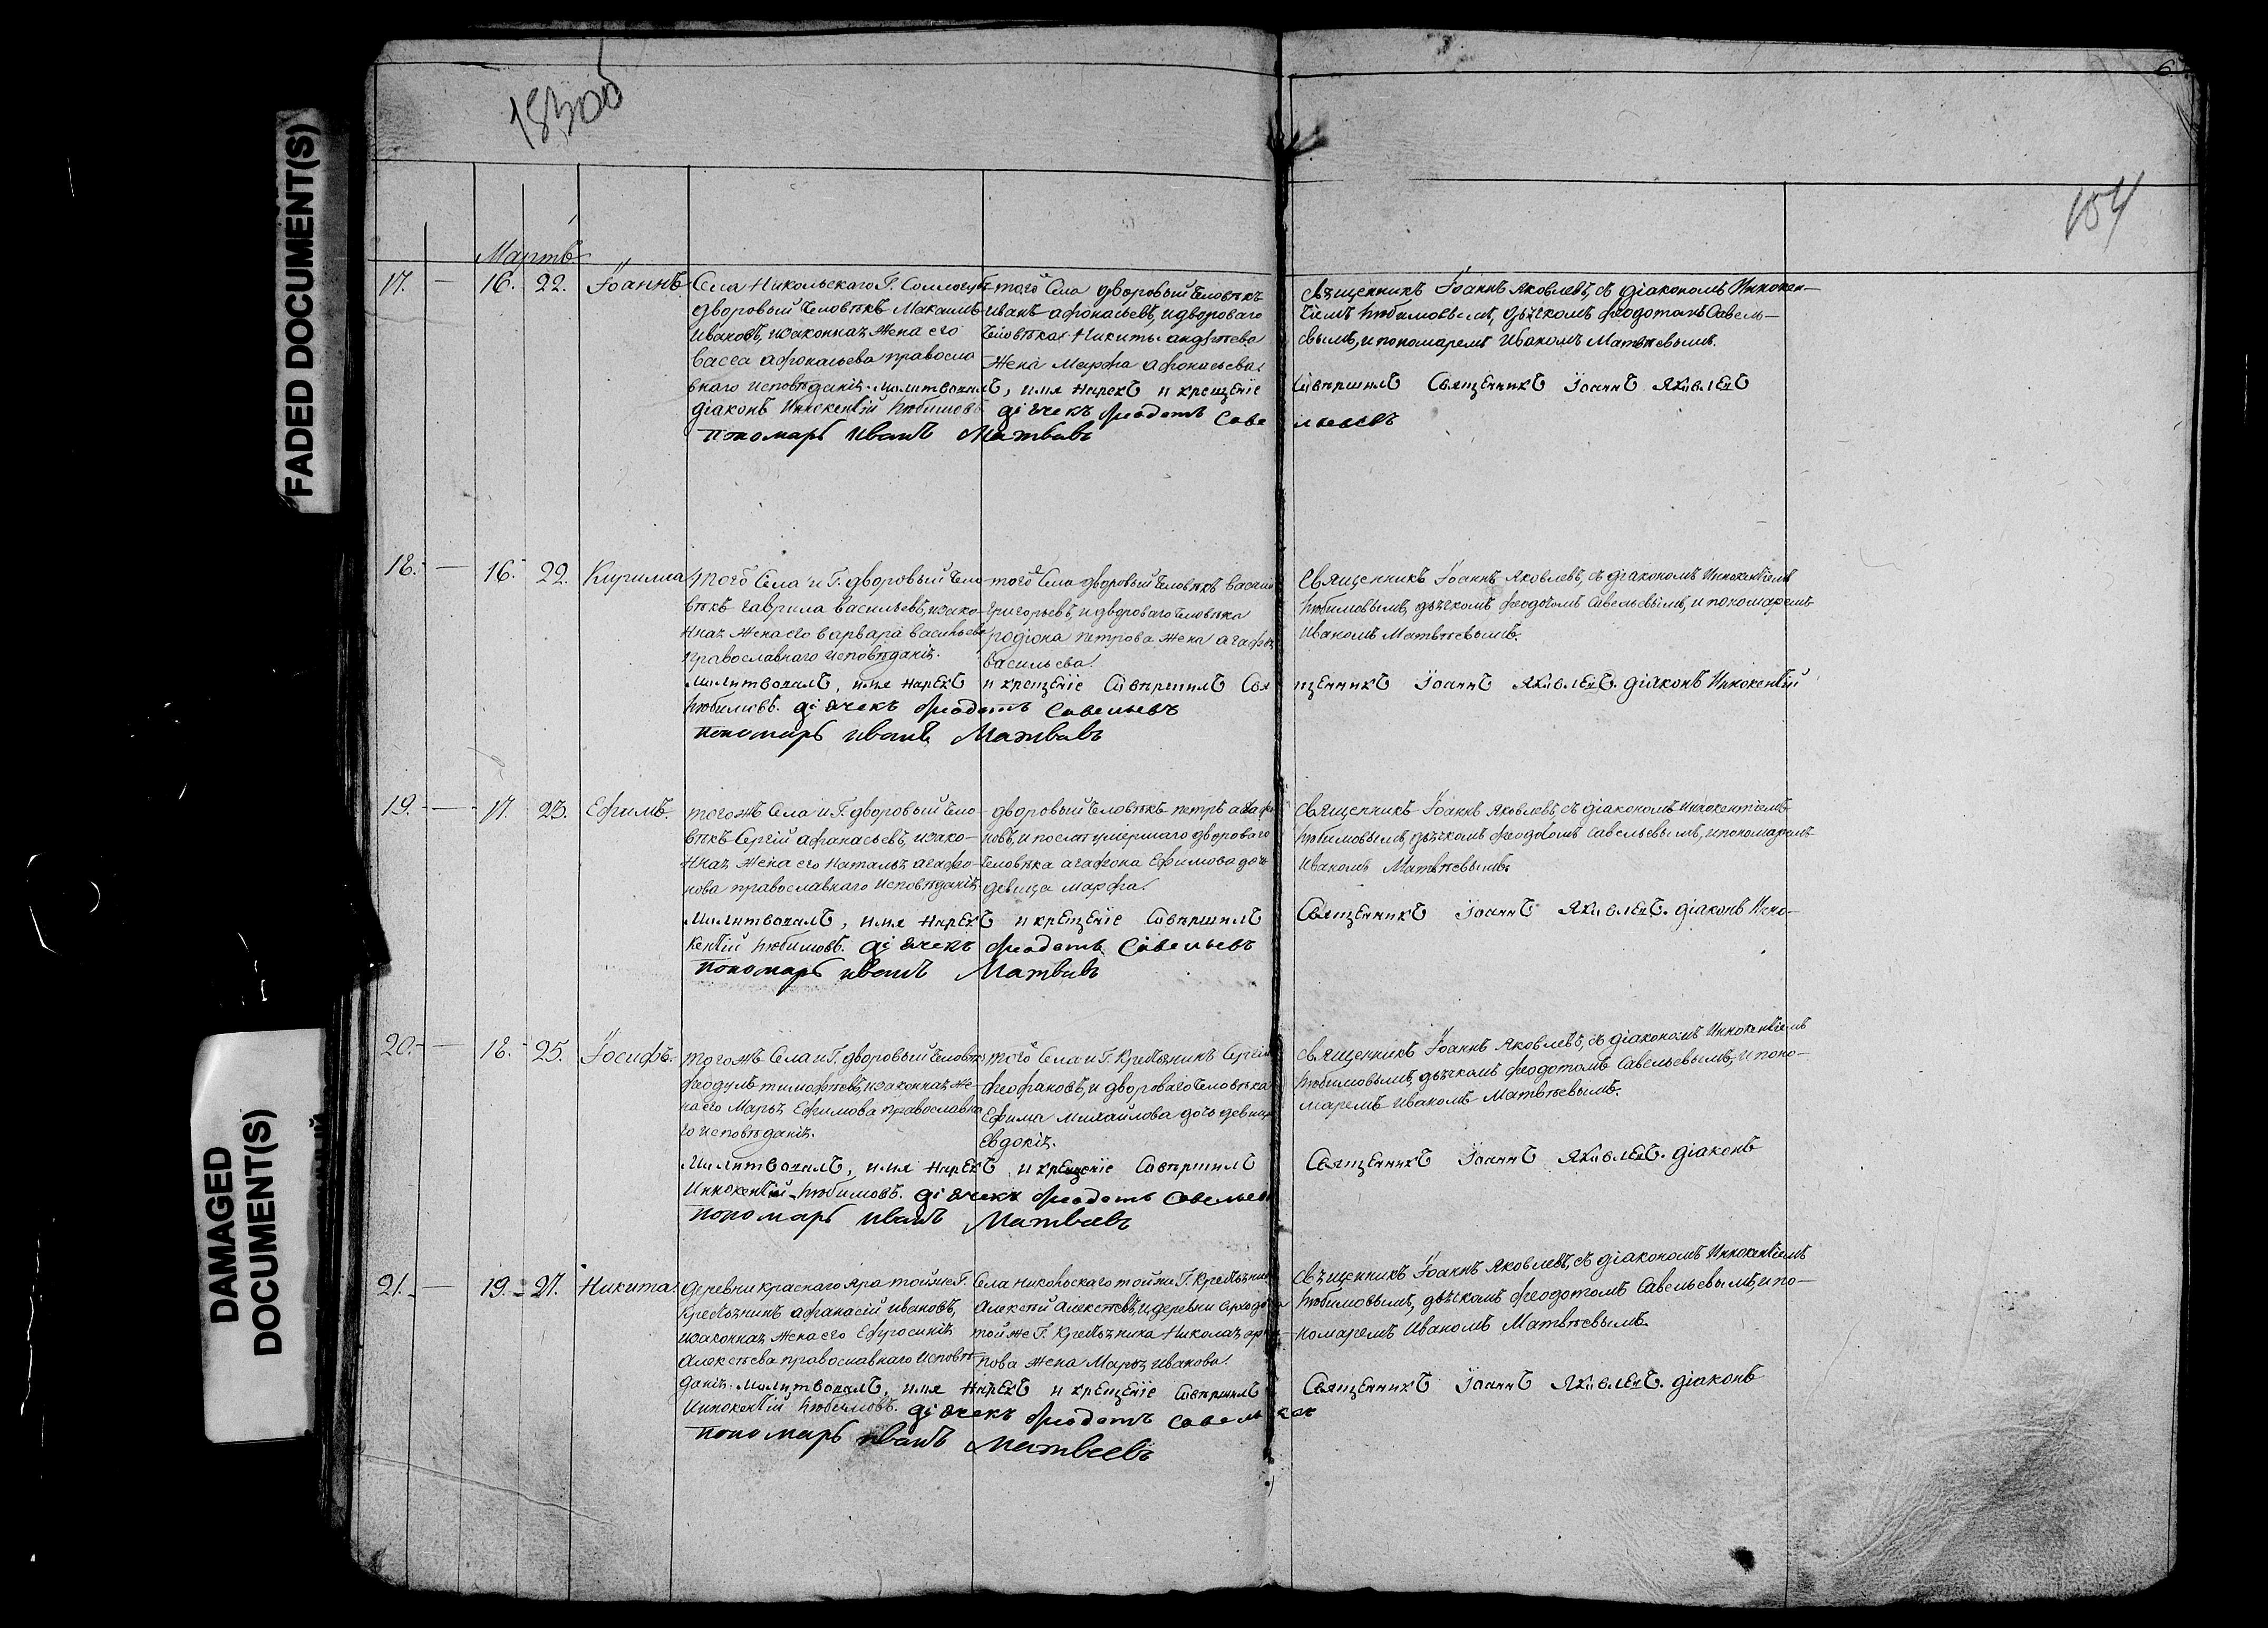 FADED DOCUMENT(S)
DAMAGED
DOCUMENT(S)
183об
6.
154
Мартъ
17. — 16. 22. Іоаннъ. Села Никольскаго Г. Соллогубъ
дворовый человѣкъ Максимъ
Ивановъ, изаконная жена его
Васса Афонасьева правосла
внаго исповѣданія. Молитвовалъ, имя нарекъ и крещеніе совершилъ Священникъ Іоаннъ Яковлевъ
діаконъ Иннокентій Любимовъ. діячекъ Феодотъ Савельевъ
Пономарь Иванъ Матвѣвъ
того Села дворовый человѣкъ
Иванъ Афонасьевъ, и двороваго
человѣка Никиты Андрѣева
жена Марфа Афонасьева.
Священникъ Іоаннъ Яковлевъ, съ діакономъ Иннокен-
тіемъ Любимовымъ, дьячкомъ Феодотомъ Савель-
евымъ, и пономаремъ Иваномъ Матвѣевымъ.
18. — 16. 22. Кирилла того Села и Г. дворовый чело-
вѣкъ Гаврила Васильевъ, изако-
нная жена его Варвара Васильева
православнаго исповѣданія.
того Села дворовый человѣкъ Василій
Григорьевъ, и двороваго человѣка
Родіона Петрова жена Агафья
Васильева.
Священникъ Іоаннъ Яковлевъ, съ діакономъ Иннокентіемъ
Любимовымъ, дьячкомъ Феодотомъ Савельевымъ, и пономаремъ
Иваномъ Матвѣевымъ.
Молитвовалъ, имя нарекъ и крещеніе совершилъ Священникъ Іоаннъ Яковлевъ. діаконъ Иннокентій
Любимовъ. діячекъ Феодотъ Савельевъ
Пономарь Иванъ Матвѣвъ
19. — 17. 23. Ефимъ. тогожъ Села и Г. дворовый чело-
вѣкъ Сергій Афанасьевъ, изако-
нная жена его Наталья Агафо-
нова православнаго исповѣданія.
дворовый человѣкъ Петръ Агафо
новъ, и послѣ умершаго двороваго
человѣка Агафона Ефимова дочь
девица Марфа.
Священникъ Іоаннъ Яковлевъ, съ діакономъ Иннокентіемъ
Любимовымъ, дьячкомъ Феодотомъ Савельевымъ, и пономаремъ
Иваномъ Матвѣевымъ.
Молитвовалъ, имя нарекъ и крещеніе совершилъ Священникъ Іоаннъ Яковлевъ. діаконъ Инно-
кентій Любимовъ. діячекъ Феодотъ Савельевъ
Пономарь Иванъ Матвѣвъ
20. — 18. 25. Іосифъ. тогожъ Села и Г. дворовый человѣкъ
Феодулъ Тимофѣевъ, изаконная же-
на его Марья Ефимова православна
го исповѣданія.
того Села и Г. Крестьянинъ Сергій
Феофановъ, и двороваго человѣка
Ефима Михайлова дочь девица
Евдокія.
Священникъ Іоаннъ Яковлевъ, съ діакономъ Иннокентіемъ
Любимовымъ, дьячкомъ Феодотомъ Савельевымъ, и поно-
маремъ Иваномъ Матвѣевымъ.
Молитвовалъ, имя нарекъ и крещеніе совершилъ Священникъ Іоаннъ Яковлевъ. діаконъ
Иннокентій Любимовъ. діячекъ Феодотъ Савельевъ
Пономарь Иванъ Матвѣевъ
21. — 19. 27. Никита. Деревни Краснаго Яра тойже Г.
Крестьянинъ Афанасій Ивановъ,
изаконная жена его Ефросинія
Алексѣева православнаго исповѣ
данія.
Села Никольскаго тойже Г. Крестьянинъ
Алексѣй Алексѣевъ, и деревни
тойже Г. Крестьянина Николая
пова жена Марья Иванова.
Священникъ Іоаннъ Яковлевъ, съ діакономъ Иннокентіемъ
Любимовымъ, дьячкомъ Феодотомъ Савельевымъ, и по-
номаремъ Иваномъ Матвѣевымъ.
Молитвовалъ, имя нарекъ и крещеніе совершилъ Священникъ Іоаннъ Яковлевъ. діаконъ
Иннокентій Любимовъ. діячекъ Феодотъ Савельевъ
Пономарь Иванъ Матвеевъ